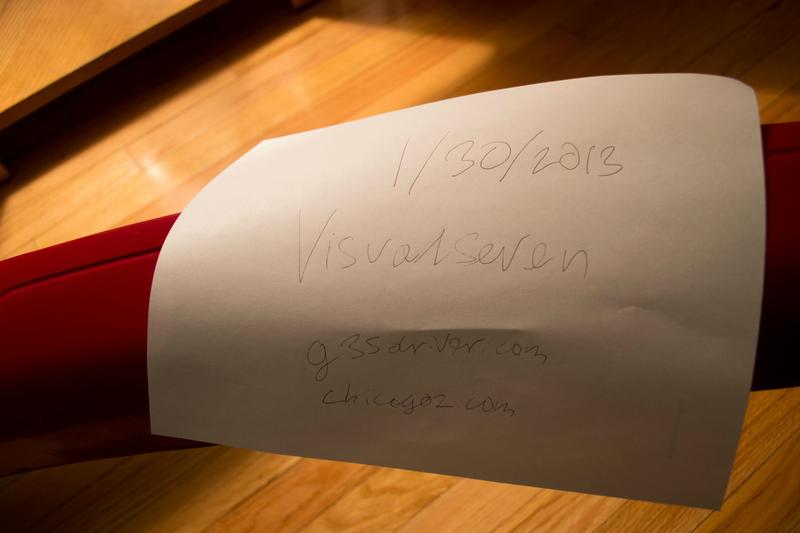 1/30/2013
Visualseven
g35driver.com
chicagoz.com